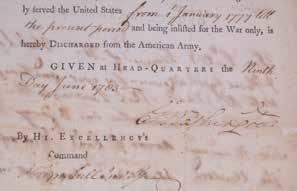 ly served the United States from 1 January 1777 till
the present period and being inlisted for the War only, is
hereby DISCHARGED from the American Army,
GIVEN at HEAD-QUARTERS the Ninth
Day June 1783
By HIS EXCELLENCY's
Command